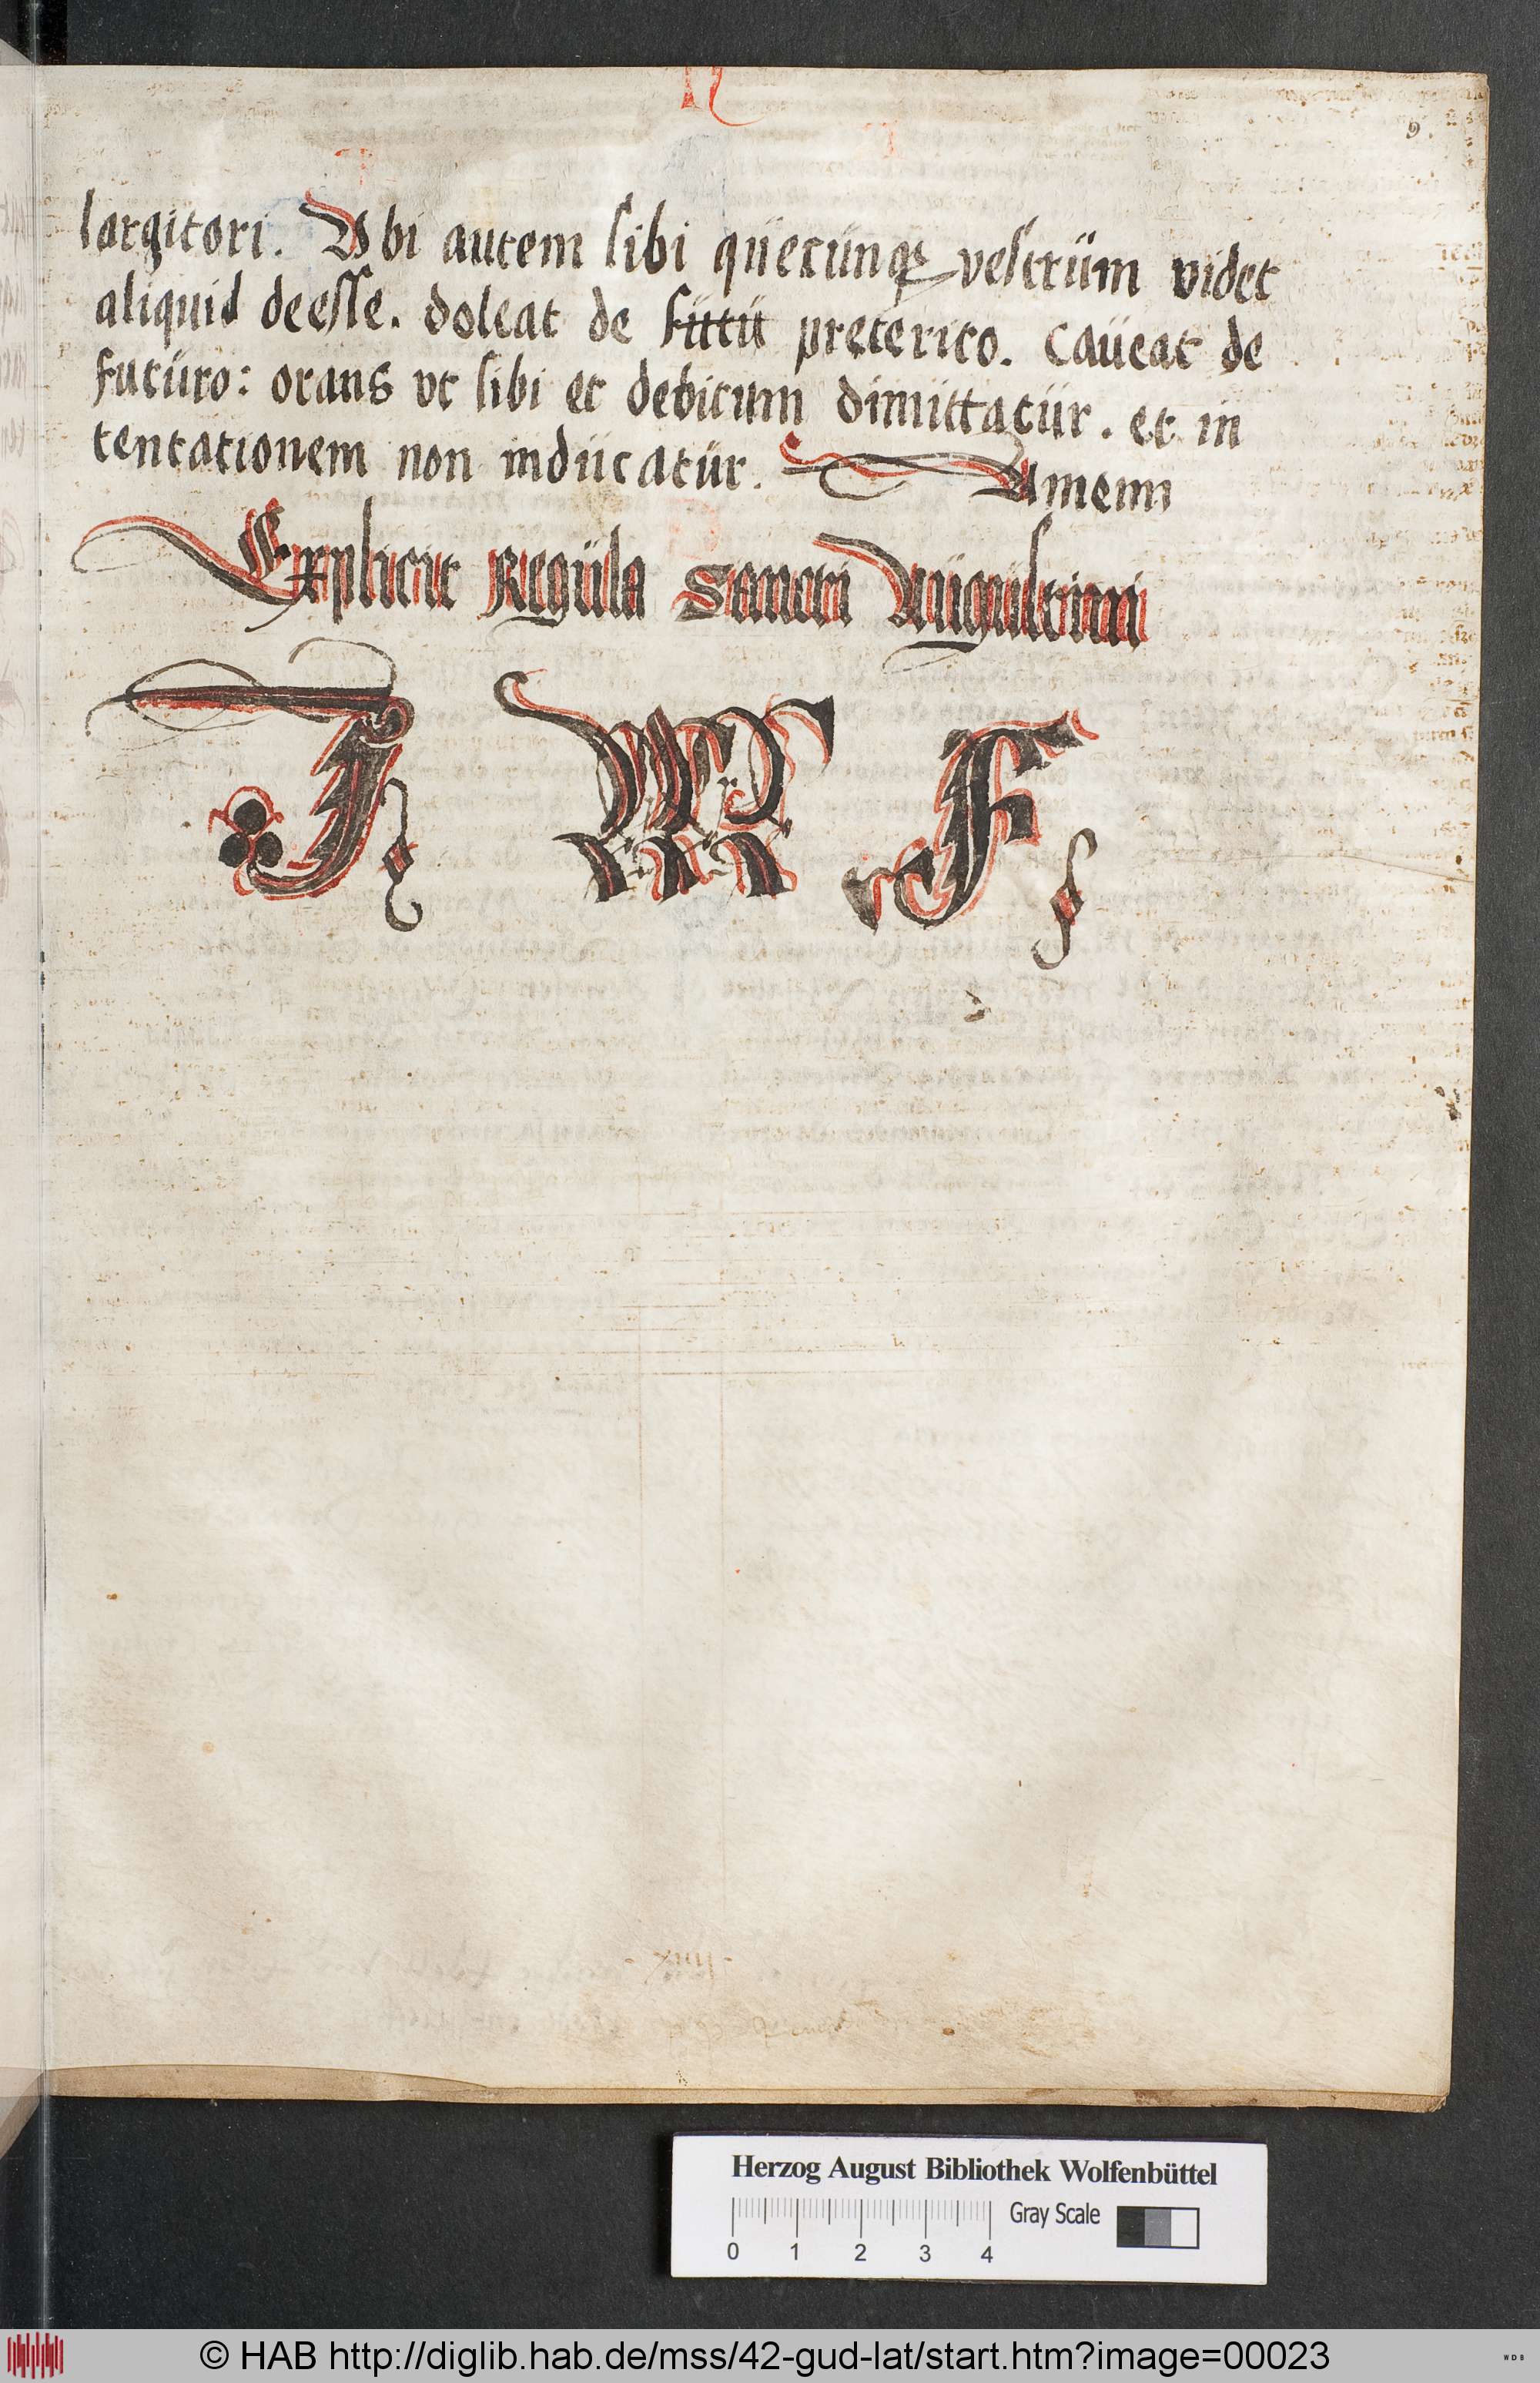 9.
largitori. Vbi autem sibi qüecünqꝫ vestrüm videt
aliquid deesse. doleat de fütü preterito. caüeat de
futüro: orans vt sibi et debitum dimittatür. et in
tentationem non indücatür. Amenn
Explicit Regüla Sancti Aügüstinni
J W F
Herzog August Bibliothek Wolfenbüttel
0 1 2 3 4 Gray Scale
© HAB http://diglib.hab.de/mss/42-gud-lat/start.htm?image=00023
WDB